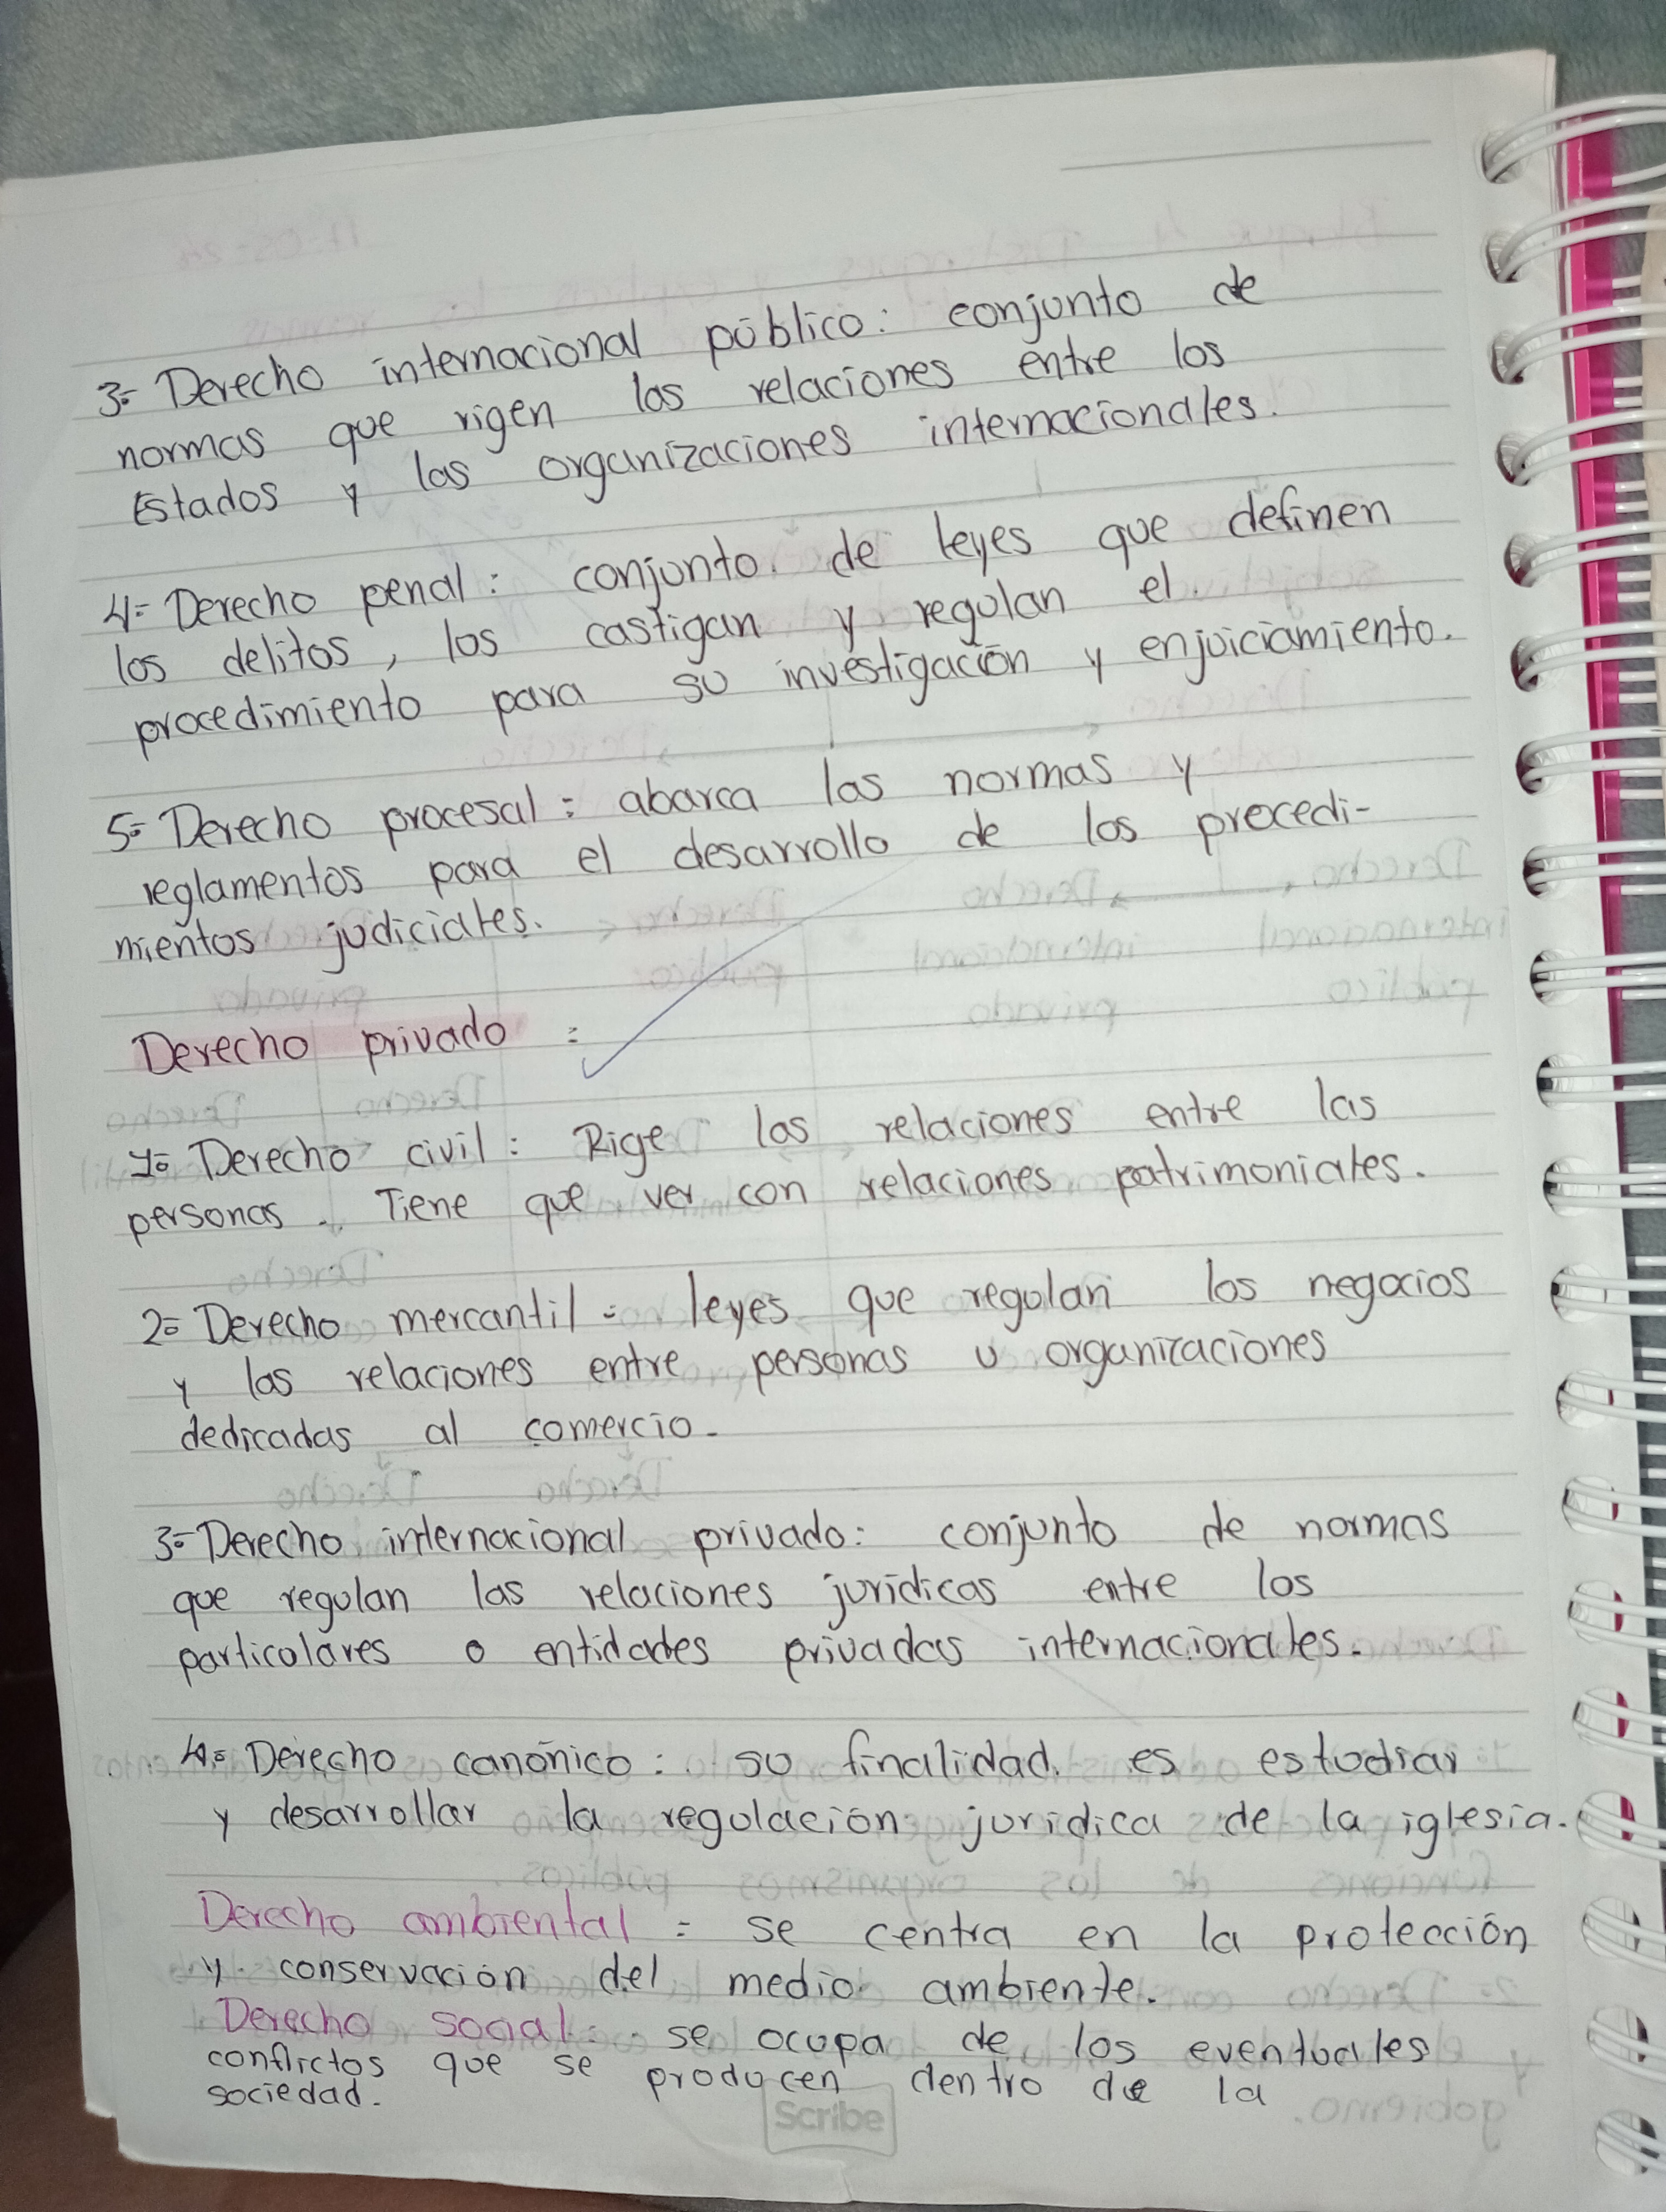 3.- Derecho internacional público: conjunto de
normas que rigen las relaciones entre los
Estados y las organizaciones internacionales.
4.- Derecho penal: conjunto de leyes que definen
los delitos, los castigan y regulan el
procedimiento para su investigación y enjuiciamiento.
5.- Derecho procesal: abarca las normas y
reglamentos para el desarrollo de los procedi-
mientos judiciales.
Derecho privado:
1.- Derecho civil: Rige las relaciones entre las
personas. Tiene que ver con relaciones patrimoniales.
2.- Derecho mercantil: leyes que regulan los negocios
y las relaciones entre personas u organizaciones
dedicadas al comercio.
3.- Derecho internacional privado: conjunto de normas
que regulan las relaciones jurídicas entre los
particulares o entidades privadas internacionales.
4.- Derecho canónico: su finalidad es estudiar
y desarrollar la regulación jurídica de la iglesia.
Derecho ambiental: se centra en la protección
y conservación del medio ambiente.
Derecho social: se ocupa de los eventuales
conflictos que se producen dentro de la
sociedad.
Scribe